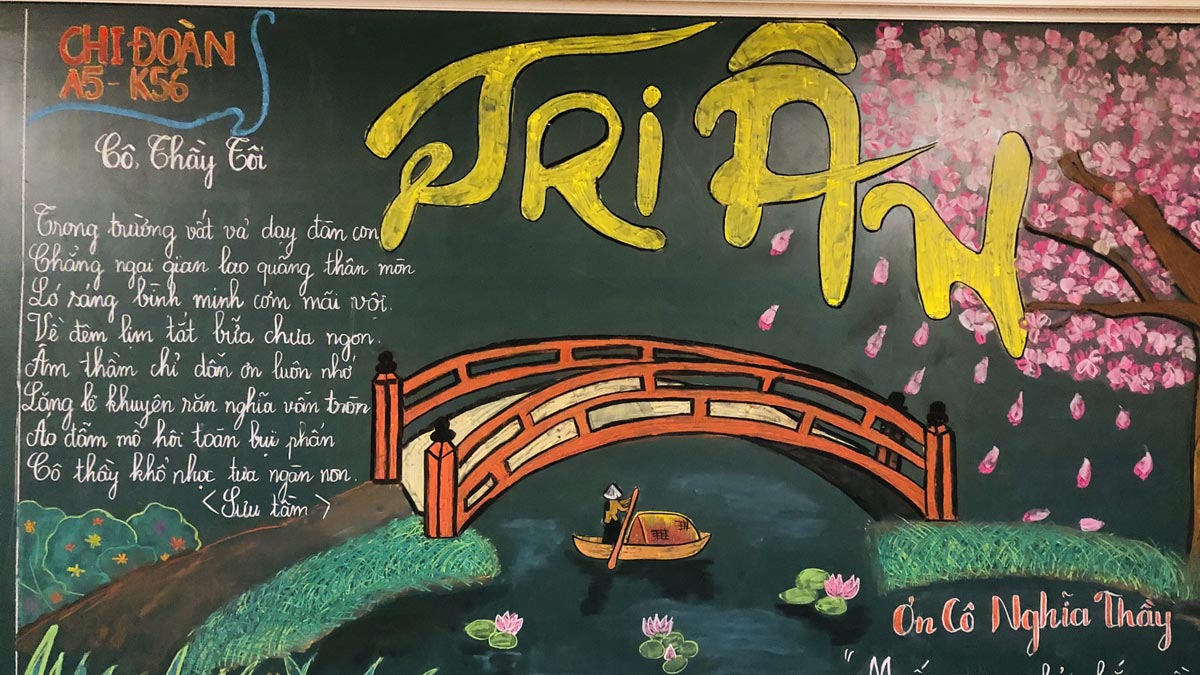 CHI ĐOÀN
A5 - K56
Cô, Thầy Tôi
Trong trường vất vả dạy đàn con
Chẳng ngại gian lao quãng thân mòn
Ló sáng bình minh cơm mãi vội.
Về đêm lịm tắt bữa chưa ngon.
Âm thầm chỉ dẫn ơn luôn nhớ
Lặng lẽ khuyên răn nghĩa vẫn tròn
Áo đẫm mồ hôi toàn bụi phấn
Cô thầy khổ nhọc tựa ngàn non.
<Sưu tầm>
TRI ÂN
Ơn Cô Nghĩa Thầy